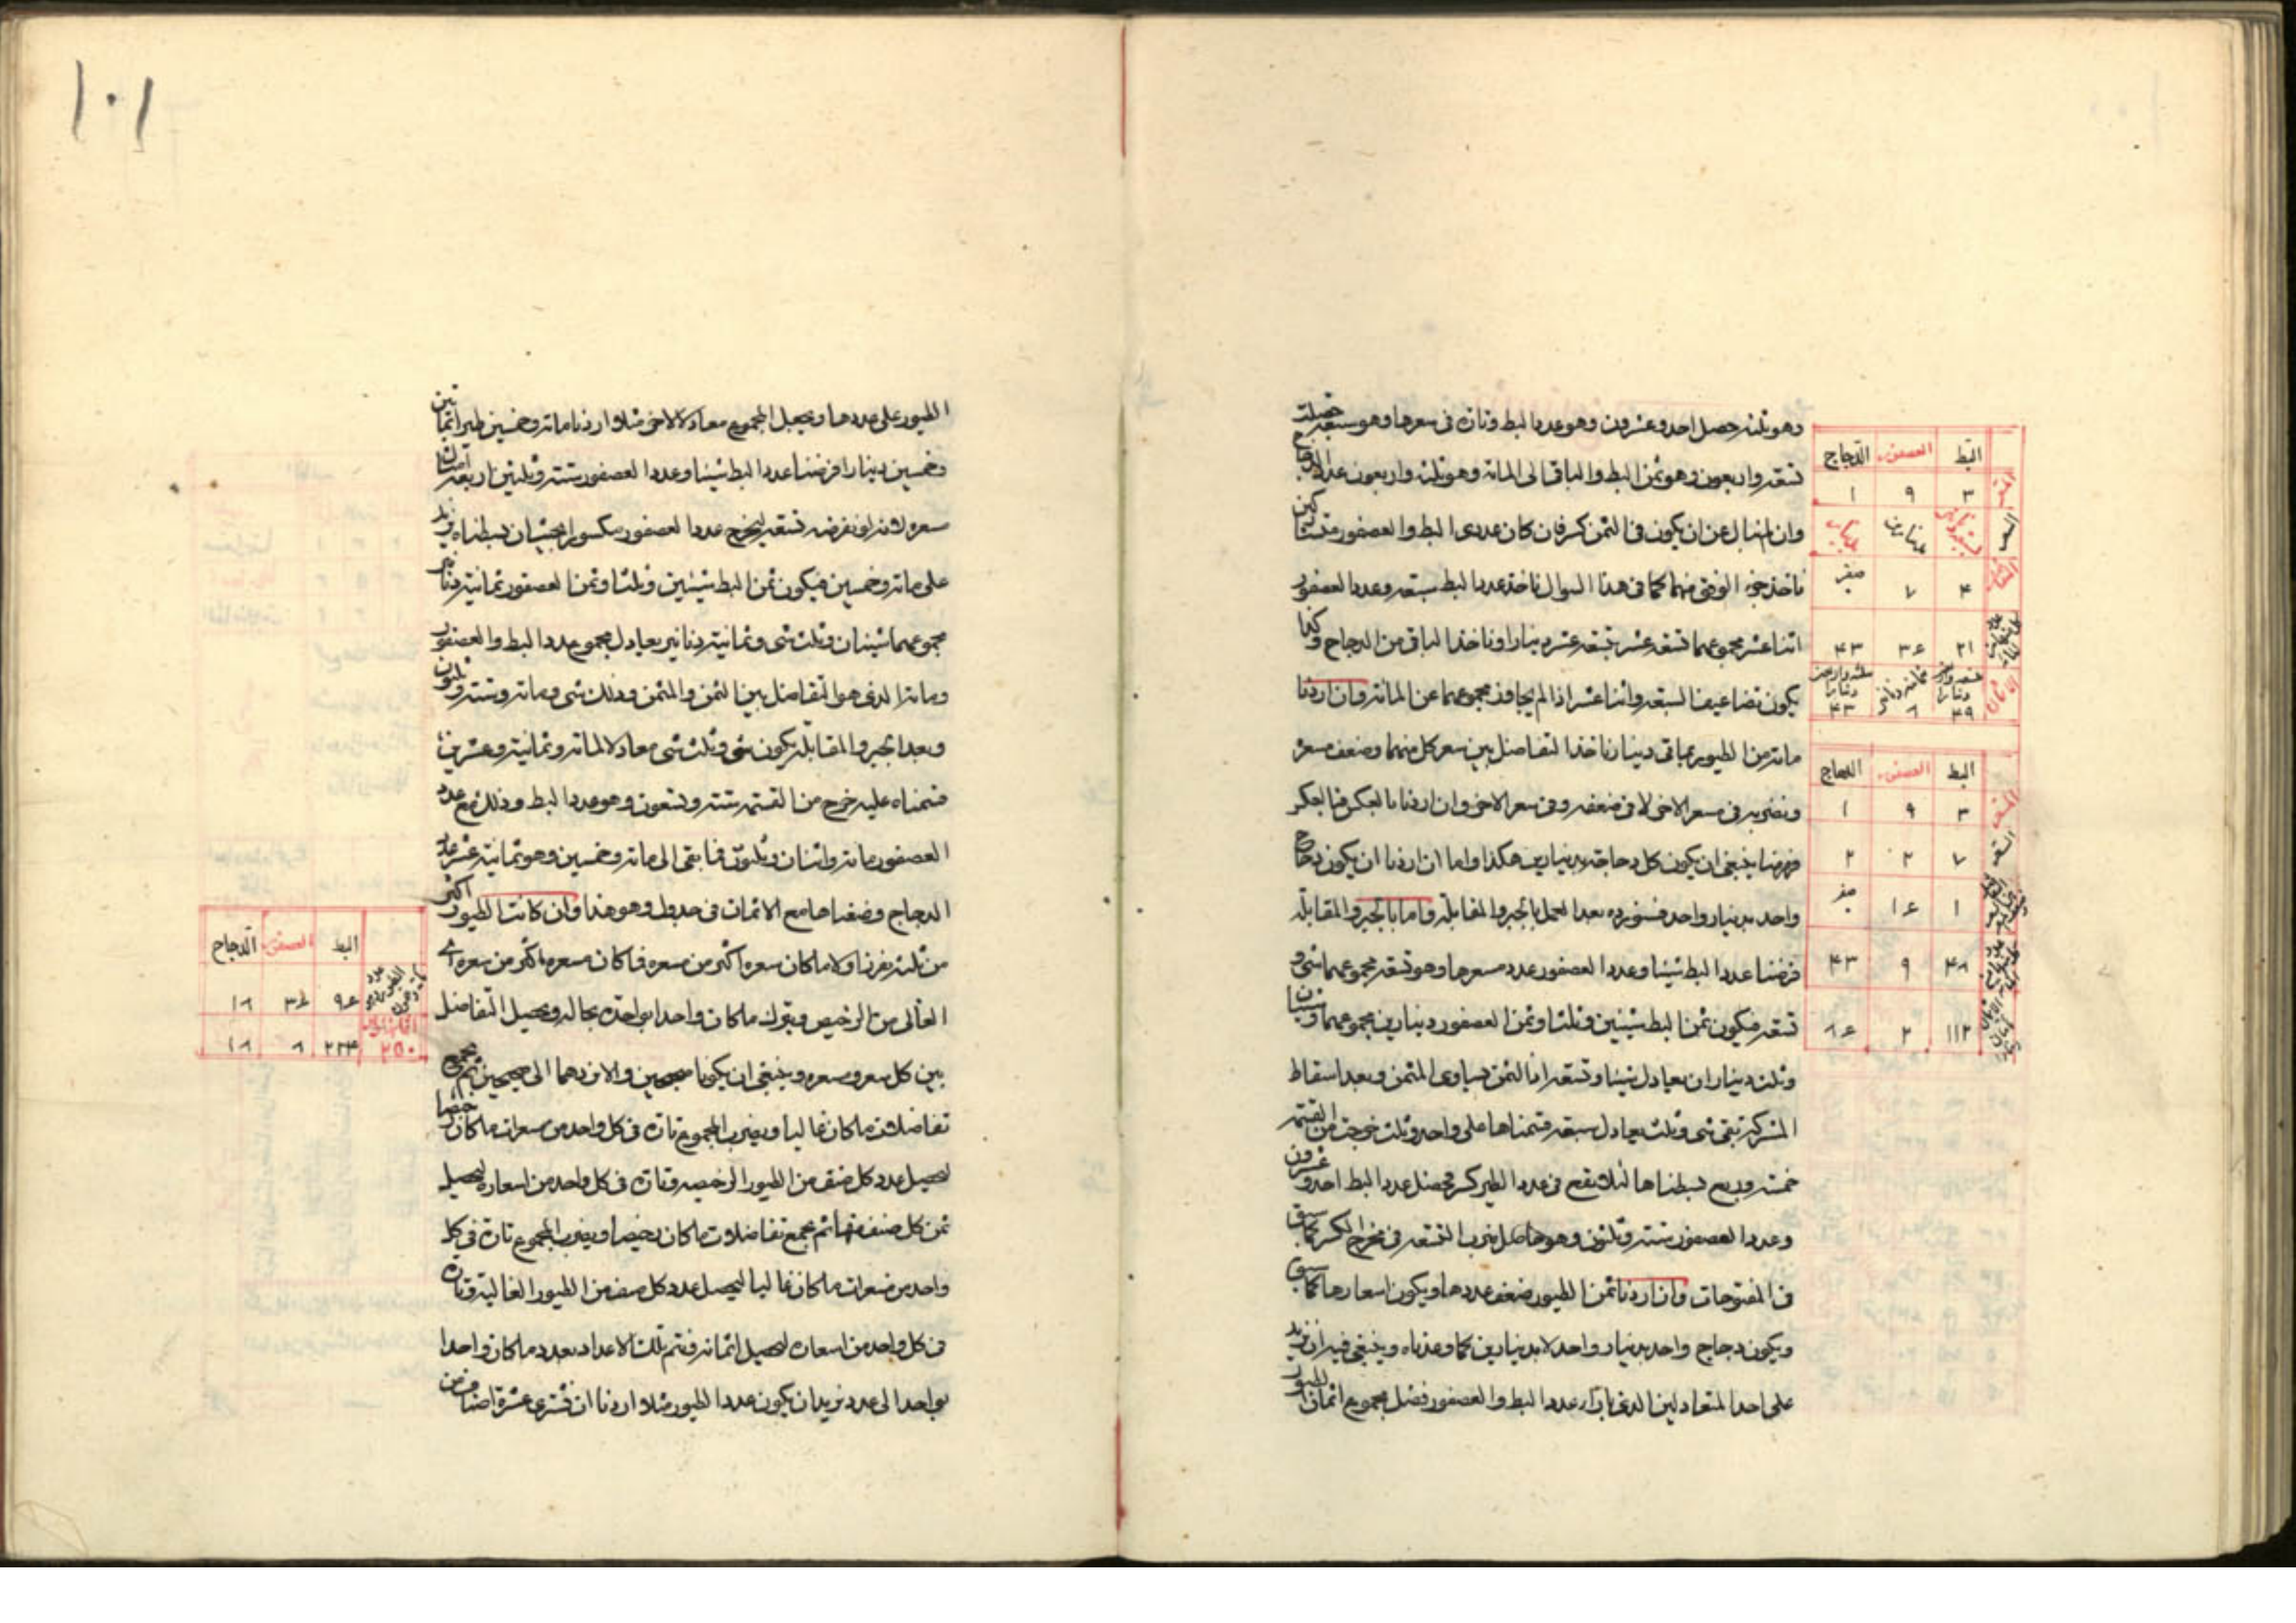 وهو ثلثه حصل احد وعشرون وهو عدد البط وتارة فى سعرها وهو سبعة حصلت
تسعة واربعون وهو ثمن البط والباقى الى المائة وهو ثلثة واربعون عدد الدجاج
وان لم نبال عن ان يكون فى الثمن كسر فان كان عددى البط والعصفور متشاركين
ناخذ جزء الوفق منهما كما فى هذا السوال ناخذ عدد البط سبعة وعدد العصفور
اثنا عشر مجموعهما تسعة عشر بتسعة عشر دينارا وناخذ الباقى من الدجاج وكذا
يكون تضاعيف السبعة واثنا عشر اذا لم يجاوز مجموعهما عن المائة وان اردنا
مائة من الطيور بمائتى دينار ناخذ التفاضل بين سعر كل منهما وضعف مسعره
ونضربه فى مسعر الاخر لا فى ضعفه وفى سعر الاخر وان اردنا بالعكس فبالعكس
فههنا ينبغى ان يكون كل دجاجة بدينارين هكذا واما ان اردنا ان يكون دجاج
واحد بدينار واحد فسنورده بعد العمل بالجبر والمقابلة واما بالجبر والمقابلة
فرضنا عدد البط شيئا وعدد العصفور عدد مسعرها وهو تسعة مجموعهما شئ و
تسعة فيكون ثمن البط شيئين وثلثا وثمن العصفور دينارين مجموعهما شيئان
وثلث ديناران يعادل شيئا وتسعة اذ الثمن يساوى المثمن وبعد اسقاط
المشترك تبقى شئ وثلث يعادل سبعة قسمناها على واحد وثلث خرجت من القسمة
خمسة وربع بسطناها لئلا يقع فى عدد الطير كسر فحصل عدد البط احد وعشرون
وعدد العصفور ستة وثلثون وهو حاصل ضرب التسعة فى مخرج الكسر كما سبق
فى المفتوحات وان اردنا ثمن الطيور ضعف عددها ويكون اسعارها كما سبق
ويكون دجاج واحد بدينار واحد لا بدينارين كما وعدناه وينبغى فيه ان نزيد
على احد المتعادلين الذى بازاء عدد البط والعصفور فضل مجموع اثمان الطيور
البط العصفور الدجاج
٣ ٩ ١
٤ ٧ صفر
٢١ ٣٦ ٤٣
٤٩ ٨ ٤٣
البط العصفور الدجاج
٣ ٩ ١
٧ ٢ ٢
١ ١٦ صفر
٤٨ ٩ ٤٣
١١٢ ٢ ٨٦
١٠١
الطيور على عددها ونجعل المجموع معادلا للاخر مثلا اردنا مائة وخمسين طيرا بمأتين
وخمسين دينارا فرضنا عدد البط شيئا وعدد العصفور ستة وثلثين اربعة امثال
سعره لانه لو نفرضه تسعة ليخرج عدد العصفور مكسورا بحيث ان بسطناه يزيد
على مائة وخمسين فيكون ثمن البط شيئين وثلثا وثمن العصفور ثمانية دنانير
مجموعهما شيئان وثلث شئ وثمانية دنانير يعادل مجموع عدد البط والعصفور
ومائة الذى هو التفاضل بين الثمن والمثمن وذلك شئ ومائة وستة وثلثون
وبعد الجبر والمقابلة يكون شئ وثلث شئ معادلا لمائة وثمانية وعشرين
قسمناه عليه خرج من القسمة ستة وتسعون وهو عدد البط وذلك مع عدد
العصفور مائة واثنان وثلثون فما بقى الى مائة وخمسين وهو ثمانية عشر عدد
الدجاج وضعناها مع الاثمان فى جدول وهو هذا وان كانت الطيور اكثر
من ثلثة نفرز اولا ما كان سعره اكثر من مسعره مما كان مسعره اكثر من سعره اى
الغالى من الرخيص ويترك ما كان واحدا بواحدة بحاله ونحصل التفاضل
بين كل سعر ومسعره وينبغى ان يكونا صحيحين والا نردهما الى صحيحين ثم نجمع
تفاضلات ما كان غاليا ونضرب المجموع تارة فى كل واحد من مسعرات ما كان رخيصا
ليحصل عدد كل صنف من الطيور الرخيصة وتارة فى كل واحد من اسعاره ليحصل
ثمن كل صنف منها ثم نجمع تفاضلات ما كان رخيصا ونضرب المجموع تارة فى كل
واحد من مسعرات ما كان غاليا ليحصل عدد كل صنف من الطيور الغالية وتارة
فى كل واحد من اسعاره ليحصل اثمانه فنتم تلك الاعداد بعدد ما كان واحدا
بواحد الى عدد نريد ان يكون عدد الطيور مثلا اردنا ان نشترى عشرة اصناف من
البط العصفور الدجاج
٩٦ ٣٦ ١٨
٢٥٠ ٢٢٤ ٨ ١٨